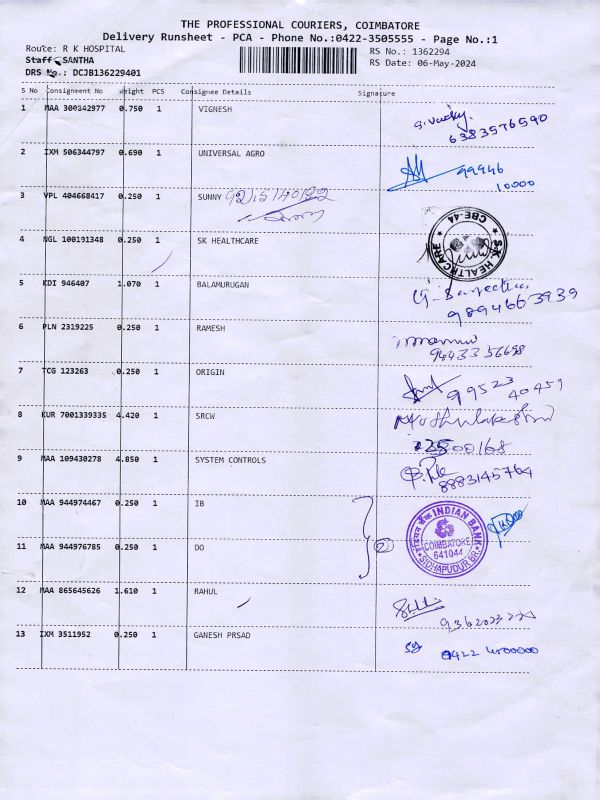 THE PROFESSIONAL COURIERS, COIMBATORE
Delivery Runsheet - PCA - Phone No.:0422-3505555 - Page No.:1
Route: R K HOSPITAL
RS No.: 1362294
Staff : SANTHA
RS Date: 06-May-2024
DRS No.: DCJB136229401
S No Consignment No Weight PCS Consignee Details Signature
1 MAA 300342977 0.750 1 VIGNESH
6383576590
2 IXM 506344797 0.690 1 UNIVERSAL AGRO
99946
10000
3 VPL 404668417 0.250 1 SUNNY
4 NGL 100191348 0.250 1 SK HEALTHCARE
S.K. HEALTHCARE CBE-44
5 KDI 946407 1.070 1 BALAMURUGAN
9894663939
6 PLN 2319225 0.250 1 RAMESH
7 TCG 123263 0.250 1 ORIGIN
99523
40459
8 KUR 7001339335 4.420 1 SRCW
9 MAA 109430278 4.850 1 SYSTEM CONTROLS
8883145764
10 MAA 944974467 0.250 1 IB
INDIAN BANK
COIMBATORE
641044
SIDHAPUDUR BR.
11 MAA 944976785 0.250 1 DO
12 MAA 865645626 1.610 1 RAHUL
13 IXM 3511952 0.250 1 GANESH PRSAD
0422 4500000